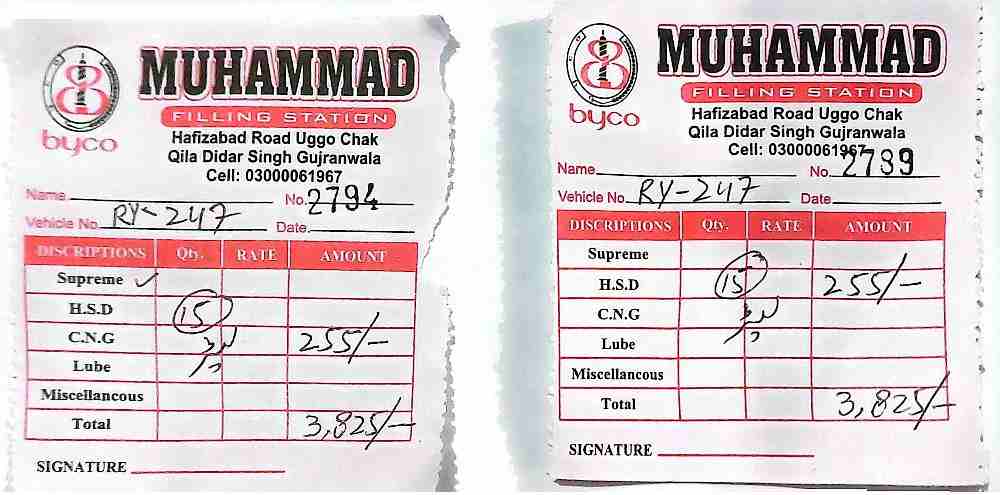 byco
MUHAMMAD
FILLING STATION
Hafizabad Road Uggo Chak
Qila Didar Singh Gujranwala
Cell: 03000061967
Name No. 2794
Vehicle No. RY-247 Date.
DISCRIPTIONS Qty. RATE AMOUNT
Supreme ✓
H.S.D 15
C.N.G لیٹر 255/-
Lube
Miscellancous
Total 3,825/-
SIGNATURE
byco
MUHAMMAD
FILLING STATION
Hafizabad Road Uggo Chak
Qila Didar Singh Gujranwala
Cell: 03000061967
Name No. 2789
Vehicle No. RY-247 Date
DISCRIPTIONS Qty. RATE AMOUNT
Supreme
H.S.D 15 255/-
C.N.G لیٹر
Lube
Miscellancous
Total 3,825/-
SIGNATURE